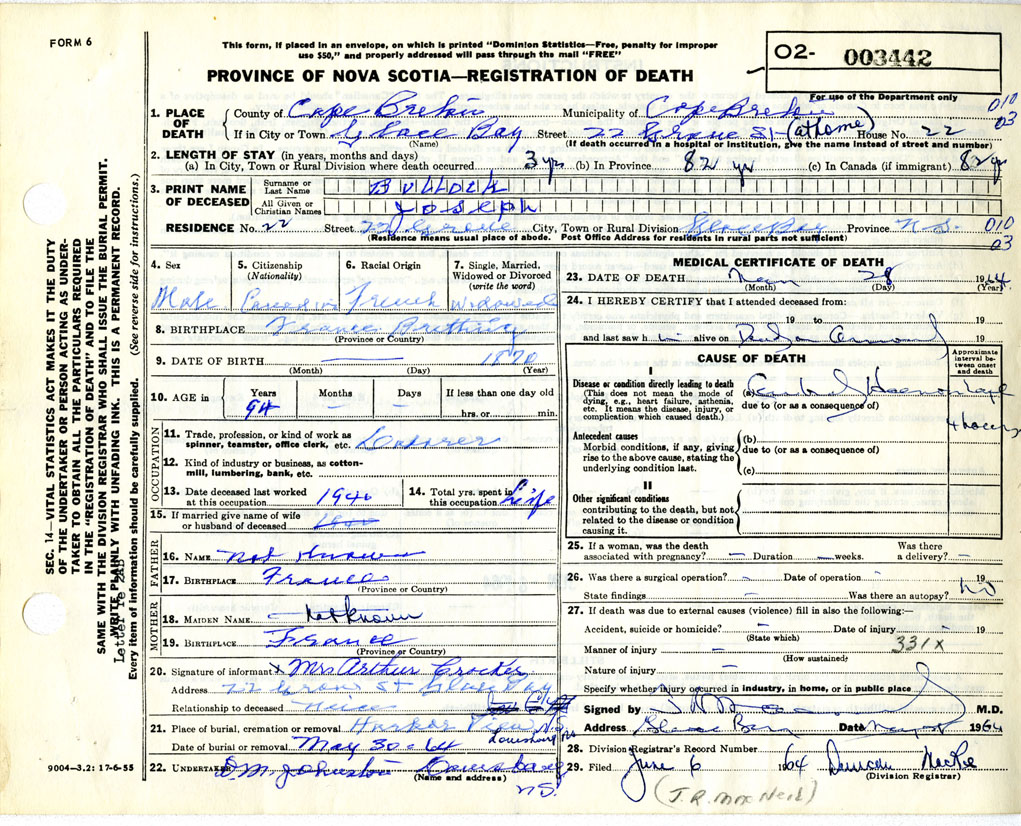 FORM 6
This form, if placed in an envelope, on which is printed "Dominion Statistics—Free, penalty for improper
use $50," and properly addressed will pass through the mail "FREE"
PROVINCE OF NOVA SCOTIA—REGISTRATION OF DEATH
02- 003442
For use of the Department only
010
03
1. PLACE OF DEATH
County of Cape Breton Municipality of Cape Breton
If in City or Town Glace Bay Street 22 Grove St (at home) House No. 22
(Name) (If death occurred in a hospital or institution, give the name instead of street and number)
2. LENGTH OF STAY (in years, months and days)
(a) In City, Town or Rural Division where death occurred 3 yr (b) In Province 82 yr (c) In Canada (if immigrant) 82 yr
3. PRINT NAME OF DECEASED
Surname or Last Name BULLOCK
All Given or Christian Names JOSEPH
RESIDENCE No. 22 Street 22 Grove City, Town or Rural Division Glace Bay Province N.S.
(Residence means usual place of abode. Post Office Address for residents in rural parts not sufficient)
010
03
4. Sex Male
5. Citizenship (Nationality) Canadian
6. Racial Origin French
7. Single, Married, Widowed or Divorced (write the word) Widowed
8. BIRTHPLACE France
(Province or Country)
9. DATE OF BIRTH — 1870
(Month) (Day) (Year)
10. AGE in Years 94 Months — Days — If less than one day
hrs. or min.
OCCUPATION
11. Trade, profession, or kind of work as spinner, teamster, office clerk, etc. Laborer
12. Kind of industry or business, as cotton-mill, lumbering, bank, etc.
13. Date deceased last worked at this occupation 1940
14. Total yrs. spent in this occupation Life
15. If married give name of wife or husband of deceased
FATHER
16. NAME Not Known
17. BIRTHPLACE France
(Province or Country)
MOTHER
18. MAIDEN NAME — Not Known
19. BIRTHPLACE France
(Province or Country)
20. Signature of informant x Mrs Arthur Crocker
Address 22 Grove St Glace Bay
Relationship to deceased Neice
21. Place of burial, cremation or removal Harbor View Louisburg N.S.
Date of burial or removal May 30-64
22. UNDERTAKER D.M. Johnston Louisburg
(Name and address)
N.S.
MEDICAL CERTIFICATE OF DEATH
23. DATE OF DEATH May 28 1964
(Month) (Day) (Year)
24. I HEREBY CERTIFY that I attended deceased from:
19 to 19
and last saw h im alive on Dead on 19
CAUSE OF DEATH
Approximate interval between onset and death
I
Disease or condition directly leading to death
(This does not mean the mode of dying, e.g., heart failure, asthenia, etc. It means the disease, injury, or complication which caused death.)
(a) Cerebral Hemorrhage
due to (or as a consequence of)
4 hours
Antecedent causes
Morbid conditions, if any, giving rise to the above cause, stating the underlying condition last.
(b)
due to (or as a consequence of)
(c)
II
Other significant conditions
contributing to the death, but not related to the disease or condition causing it.
25. If a woman, was the death associated with pregnancy? — Duration — weeks. Was there a delivery? —
26. Was there a surgical operation? — Date of operation — 19
State findings Was there an autopsy? No
27. If death was due to external causes (violence) fill in also the following:—
Accident, suicide or homicide? — Date of injury — 19
(State which)
Manner of injury — 331X
(How sustained)
Nature of injury —
Specify whether injury occurred in industry, in home, or in public place
Signed by M.D.
Address Glace Bay Date May 1964
28. Division Registrar's Record Number
29. Filed June 6 1964 Duncan
(Division Registrar)
(J.R. MacNeil)
9004-3.2: 17-6-55
SEC. 14—VITAL STATISTICS ACT MAKES IT THE DUTY
OF THE UNDERTAKER OR PERSON ACTING AS UNDER-
TAKER TO OBTAIN ALL THE PARTICULARS REQUIRED
IN THE "REGISTRATION OF DEATH" AND TO FILE THE
SAME WITH THE DIVISION REGISTRAR WHO SHALL ISSUE THE BURIAL PERMIT.
WRITE PLAINLY WITH UNFADING INK. THIS IS A PERMANENT RECORD.
Every item of information should be carefully supplied. (See reverse side for instructions.)